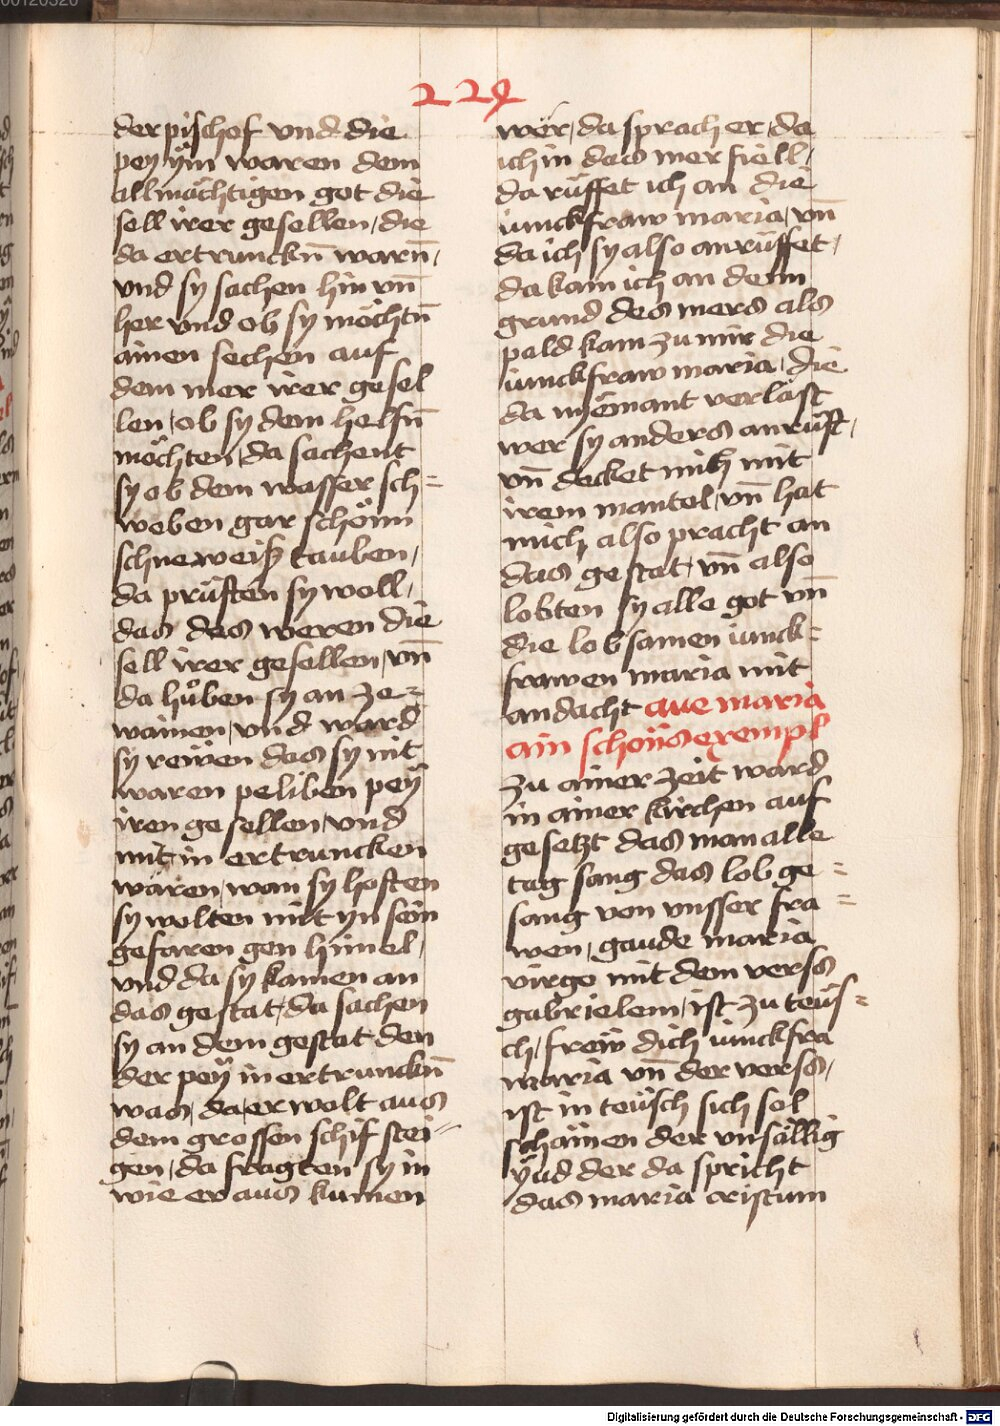 224
der pischof vnd die
pey ym waren dem
allmächtigen got die
sell irer gesellen, die
da ertrunckn̄ warn̄,
vnd sy sachen hin vn̄
her vnd ob sy möchtn̄
ainen sechen auf
dem mer irer gesel
len, ob sy dem helfn̄
möchten, da sachent
sy ob dem wasser sch=
weben gar schönn
schneweiß tauben,
da prüften sy woll,
das das weren die
sell irer gesellen, vn̄
da hůben sy an ze=
wainen, vnd ward
sy rewen das sy nit
waren peliben pey
iren gesellen, vnd
mit in ertruncken
wären, wan sy hoften
sy wolten mit yn sein
gefaren gen himel,
vnd da sy kamen an
das gestat, da sachen
sy an dem gestat den
der pey in ertrunckn̄
was, da er wolt aus
dem grossen schif stei=
gen, da fragten sy in
wie er aus kumen
wer, da sprach er, da
ich in das mer fiell,
da rüffet ich an die
iunckfraw maria, vn̄
da ich sy also anrüffet,
da kam ich an denn
grund des mers als
pald kam zu mir die
iunckfraw maria, die
da nyemant verlast
wer sy anders anrüft,
vn̄ decket mich mit
irem mantel, vn̄ hat
mich also pracht an
das gestat, vn̄ also
lobten sy alle got vn̄
die lobsamen iunck=
frawen maria mit
andacht aue maria
ain schöns exempl
Zu ainer zeit ward
in ainer kirchen auf
gesetzt das man alle
tag sang das lob ge=
sang von vnsser fra=
wen, gaude maria
virgo mit dem verss
gabrielem, ist zu teüs=
ch, frew dich iunckfra
maria vn̄ der verss,
ist in teüsch sich sol
schamen der vnsällig
yud der da spricht
das maria cristum